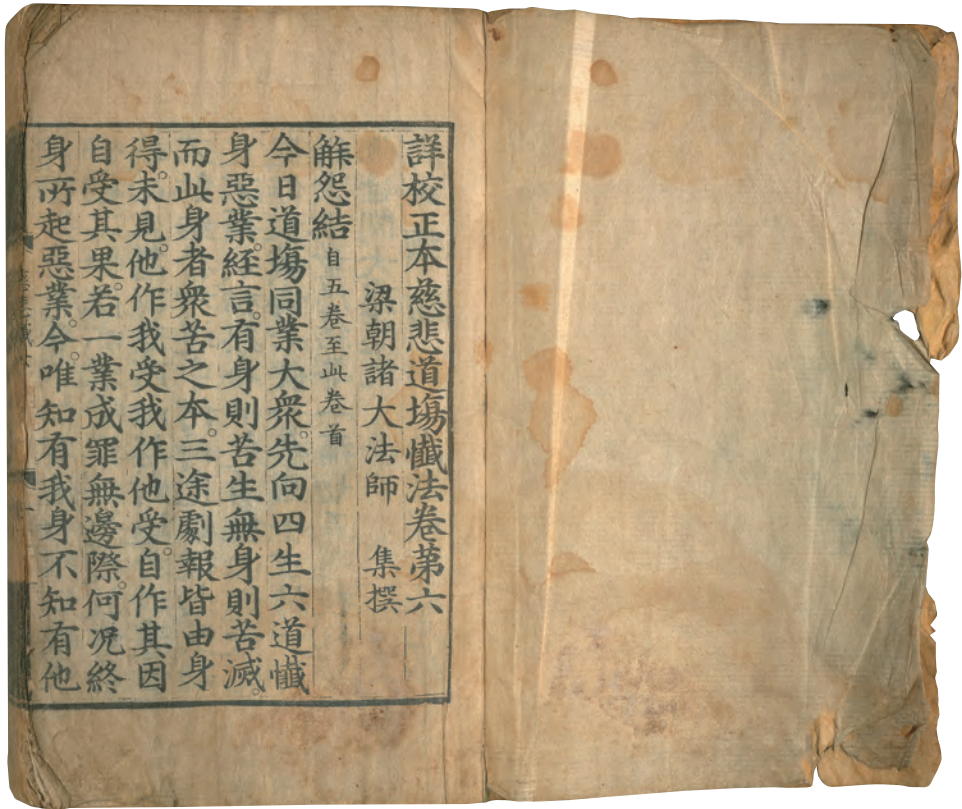 詳校正本慈悲道塲懺法卷苐六
梁朝諸大法師　集撰
觧怨結自五卷至此卷首
今日道塲同業大衆。先向四生六道懺
身惡業。経言。有身則苦生無身則苦滅。
而此身者衆苦之本。三途劇報皆由身
得。未見。他作我受我作他受。自作其因
自受其果。若一業成罪無邊際。何况終
身所起惡業。今。唯知有我身不知有他